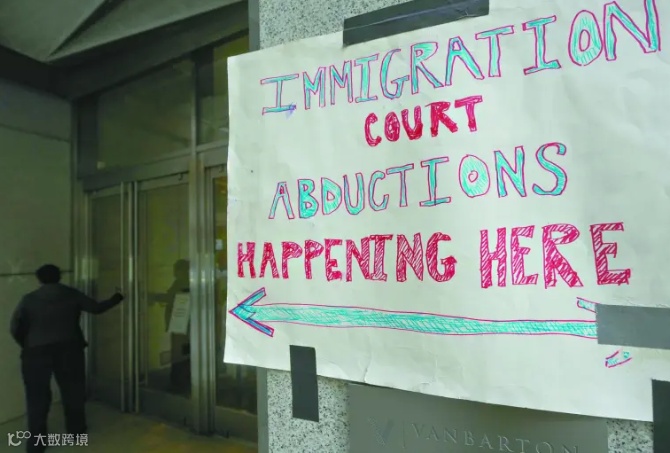 IMMIGRATION
COURT
ABDUCTIONS
HAPPENING HERE
VANBARTON
大数跨境